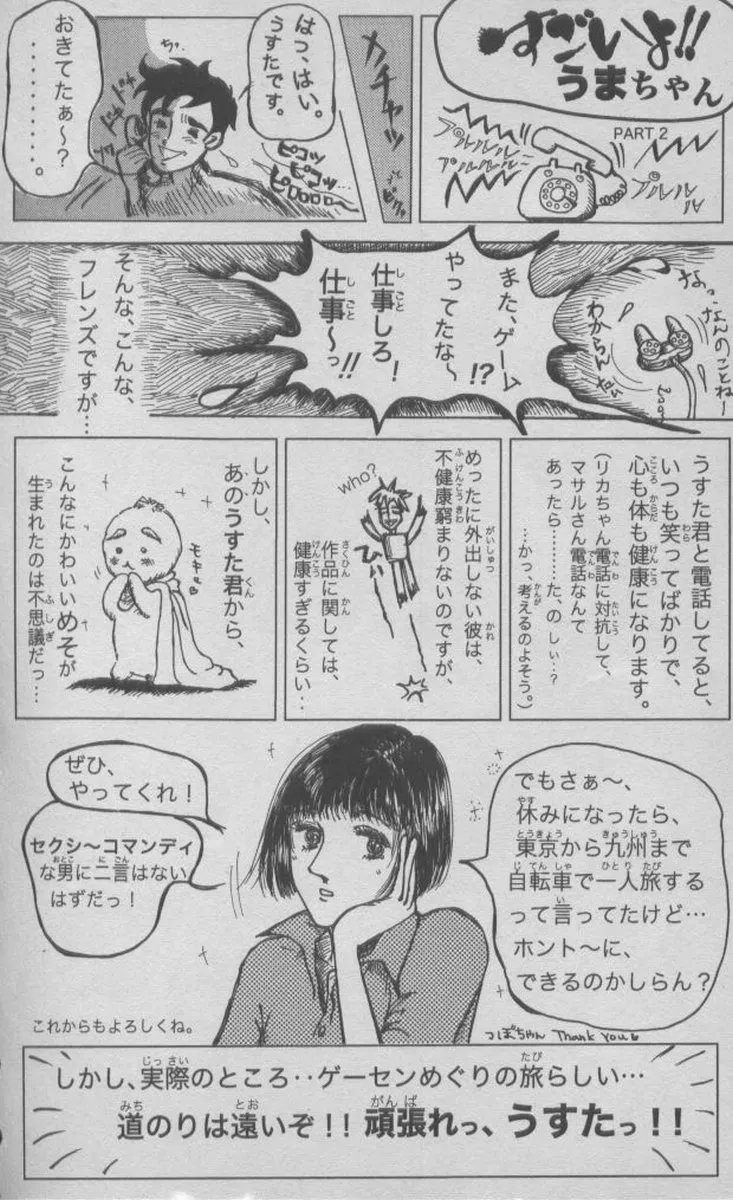 すごいよ!!
うまちゃん
PART 2
プルルルル
プルルル
プルルル
ガチャッ
ビクッ
はっ、はい。
うすたです。
ピコッ
ピコッ
ピロロロロ
ドキドキ
おきてたぁ〜?
・・・・・・・・・。
なっ、
なんのことねー
わからんばい
また、ゲーム
やってたな〜
!?
仕事しろ!
仕事〜っ!!
そんな、こんな、
フレンズですが…
うすた君と電話してると、
いつも笑ってばかりで、
心も体も健康になります。
(リカちゃん電話に対抗して、
マサルさん電話なんて
あったら………た、の しぃ…?
…かっ、考えるのよそう。)
めったに外出しない彼は、
不健康窮まりないのですが、
who?
ひぃ
作品に関しては、
健康すぎるくらい…
しかし、
あのうすた君から、
モキュ
こんなにかわいいめそが
生まれたのは不思議だっ…
でもさぁ〜、
休みになったら、
東京から九州まで
自転車で一人旅する
って言ってたけど…
ホント〜に、
できるのかしらん?
ぜひ、
やってくれ!
セクシ〜コマンディ
な男に二言はない
はずだっ!
これからもよろしくね。
つぼちゃん Thank You
しかし、実際のところ‥ゲーセンめぐりの旅らしい…
道のりは遠いぞ!!頑張れっ、うすたっ!!